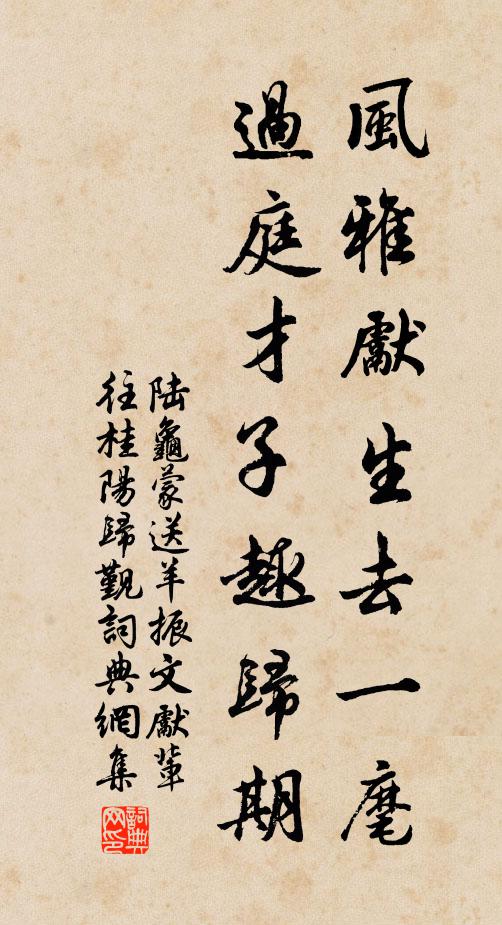 風雅獻生去一麾
過庭才子趣歸期
陆龜蒙送羊振文獻輩
往桂陽歸覲詞典網集
詞典网印